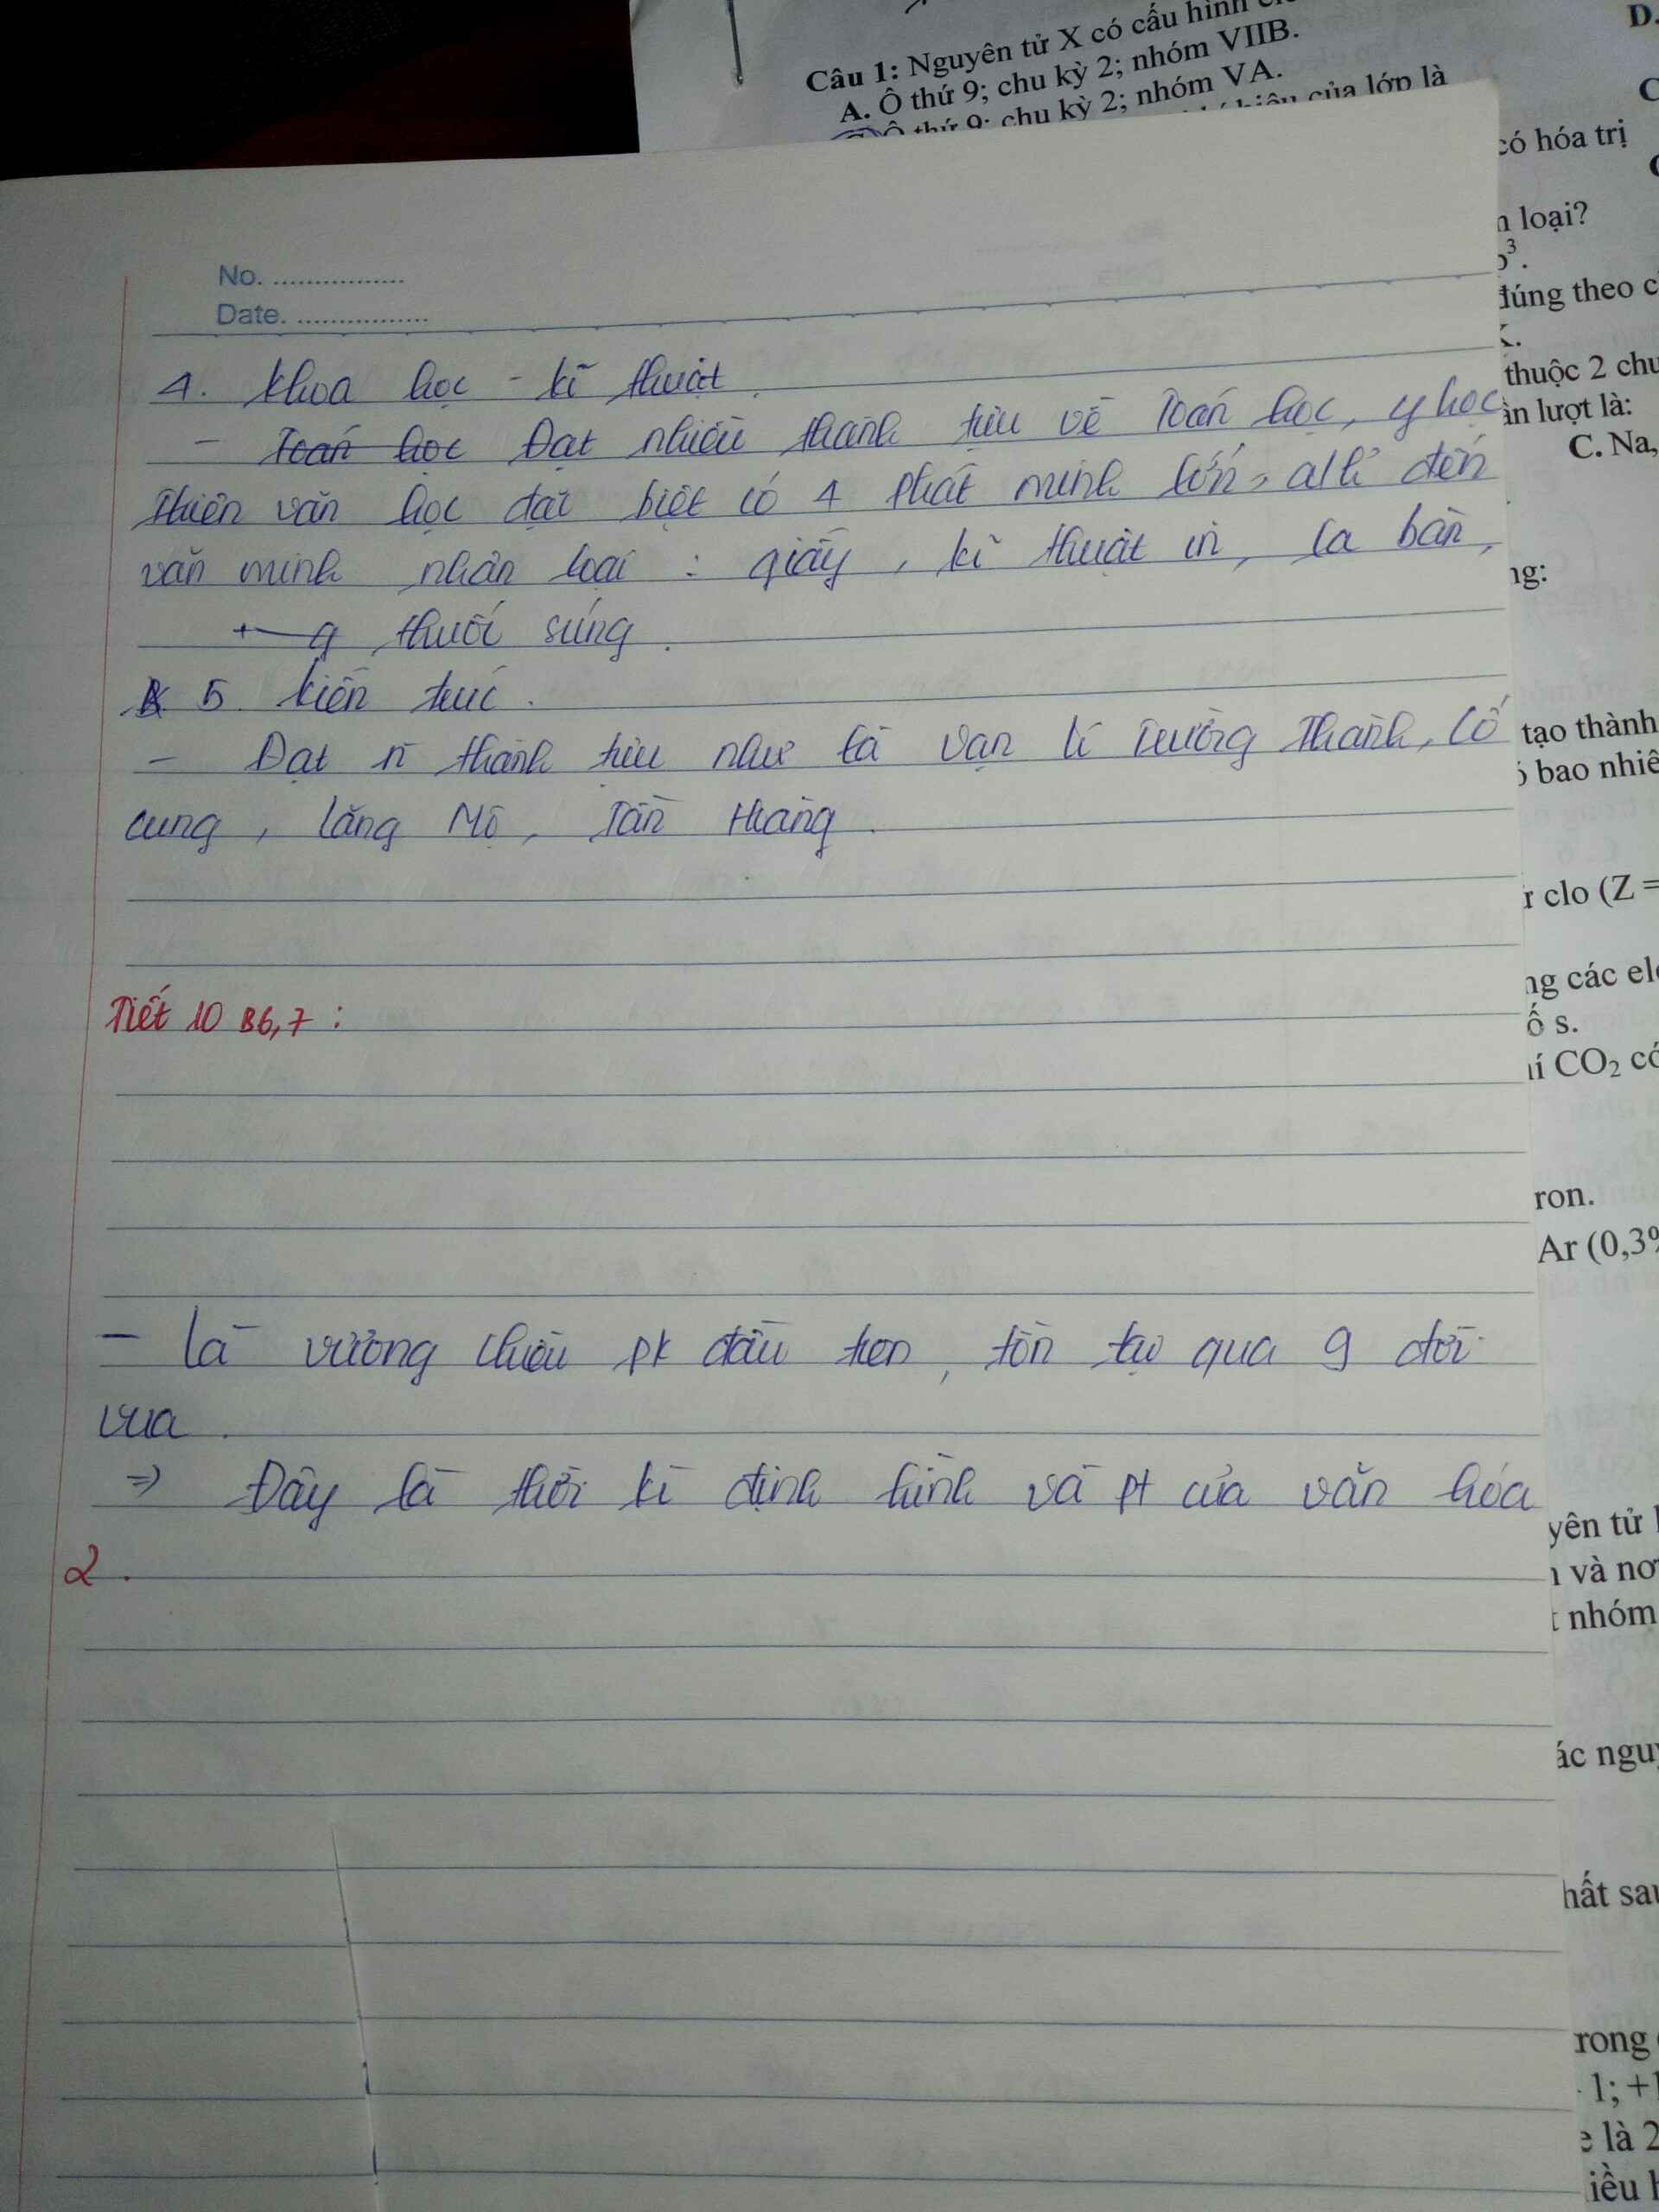 Câu 1: Nguyên tử X có cấu hình
A. Ô thứ 9; chu kỳ 2; nhóm VIIB.
Ô thứ 9; chu kỳ 2; nhóm VA.
hiệu của lớp là
D.
C
có hóa trị
loại?
No. ................
Date. ................
đúng theo c
4. Khoa học - kĩ thuật.
thuộc 2 chu
- Toán học Đạt nhiều thành tựu về Toán học, y học
ần lượt là:
C. Na,
thiên văn học đặc biệt có 4 phát minh lớn, a/h' đến
văn minh nhân loại : giấy, kĩ thuật in, la bàn,
ng:
thuốc súng.
5. kiến trúc.
- Đạt n̄ thành tựu như là Vạn lí Trường Thành, Cố
tạo thành
bao nhiê
cung, lăng Mộ, Tần Hoàng.
clo (Z =
ng các ele
Tiết 10 B6,7 :
ố s.
CO₂ có
ron.
Ar (0,3%
- là vương chiều pk đầu tien, tồn tại qua 9 đời
vua.
⇒ Đây là thời kì định hình và pt của văn hóa
yên tử
2.
và nơ
nhóm
ác nguy
hất sau
rong
1; +1
là 2
iều